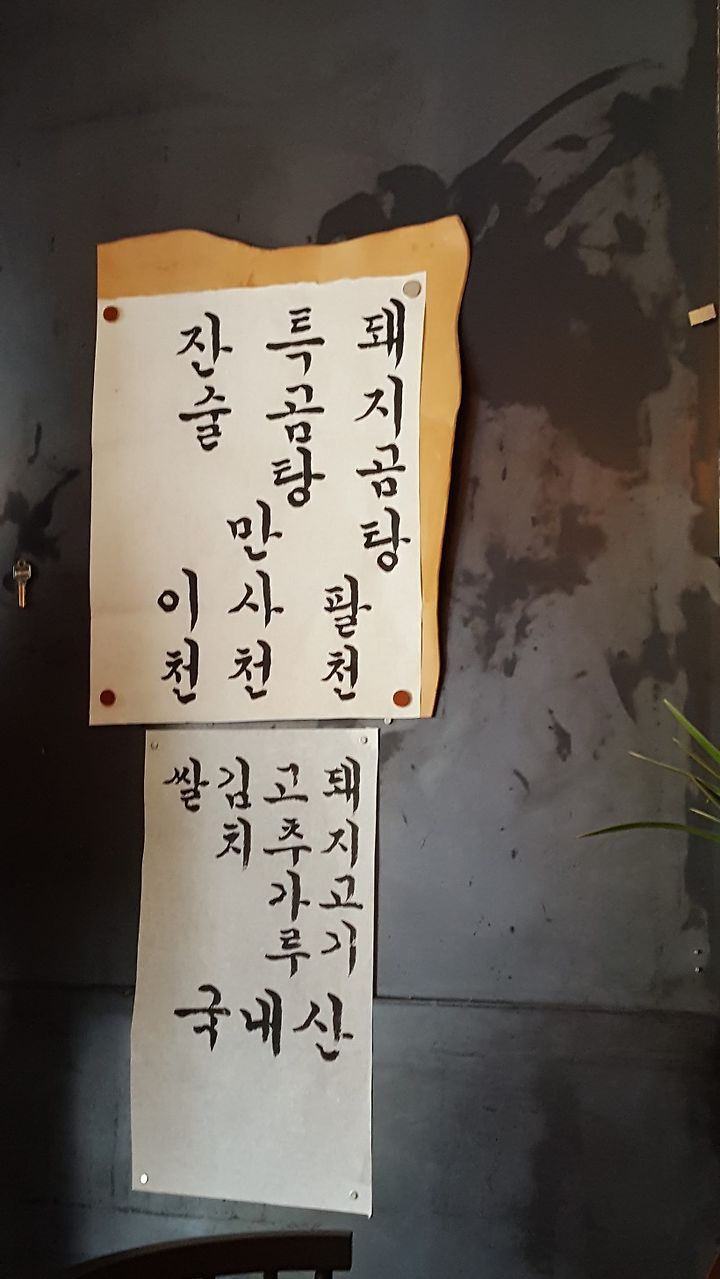 돼지곰탕 팔천
특곰탕 만사천
잔술 이천
돼지고기
고추가루
김치
쌀
국내산